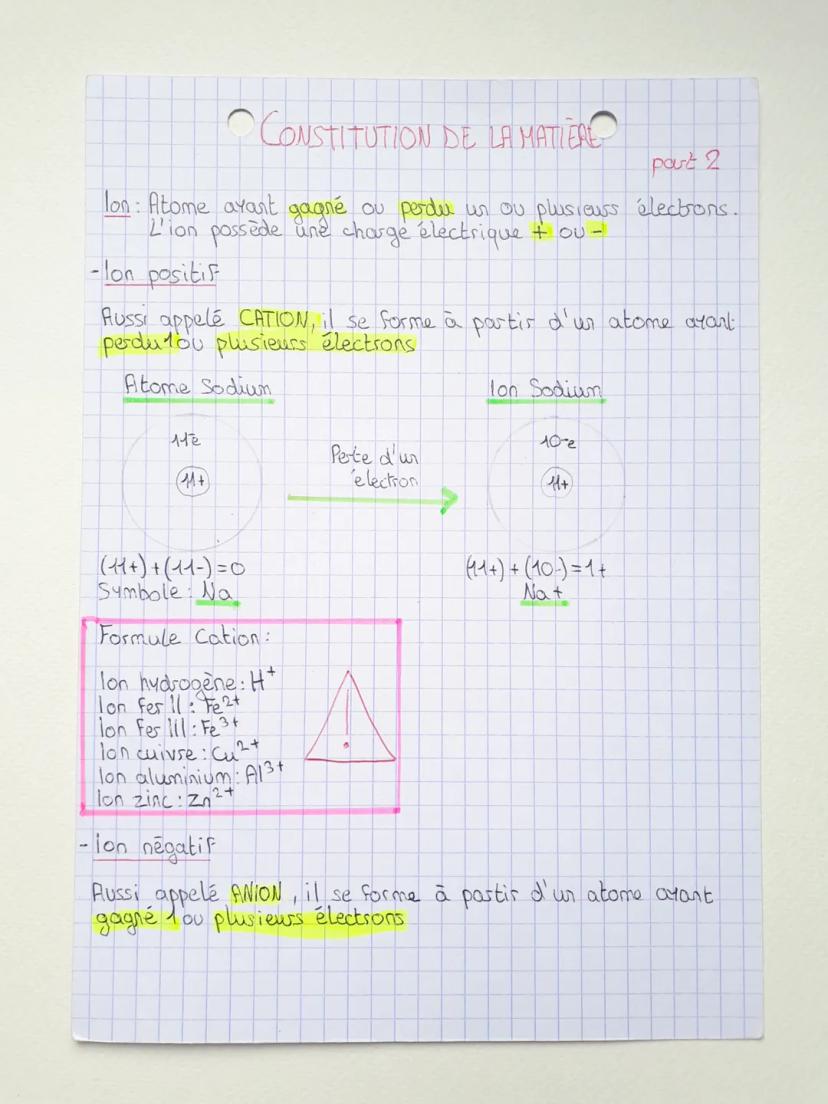 CONSTITUTION DE LA MATIÈRE
part 2
Ion : Atome ayant gagné ou perdu un ou plusieurs électrons.
L'ion possède une charge électrique + ou -
- Ion positif
Aussi appelé CATION, il se forme à partir d'un atome ayant
perdu 1 ou plusieurs électrons
Atome Sodium
Ion Sodium
11-e
11+
Perte d'un
électron
10-e
11+
(11+)+(11-)=0
Symbole : Na
(11+)+(10-)=1+
Na+
Formule Cation :
Ion hydrogène : H⁺
Ion fer II : Fe²⁺
Ion fer III : Fe³⁺
Ion cuivre : Cu²⁺
Ion aluminium : Al³⁺
Ion zinc : Zn²⁺
- Ion négatif
Aussi appelé ANION, il se forme à partir d'un atome ayant
gagné 1 ou plusieurs électrons